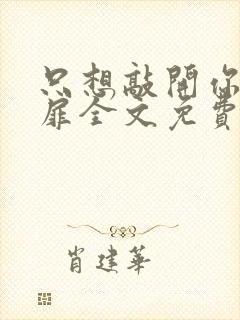 只想敲開你
扉全文免費
肖建華